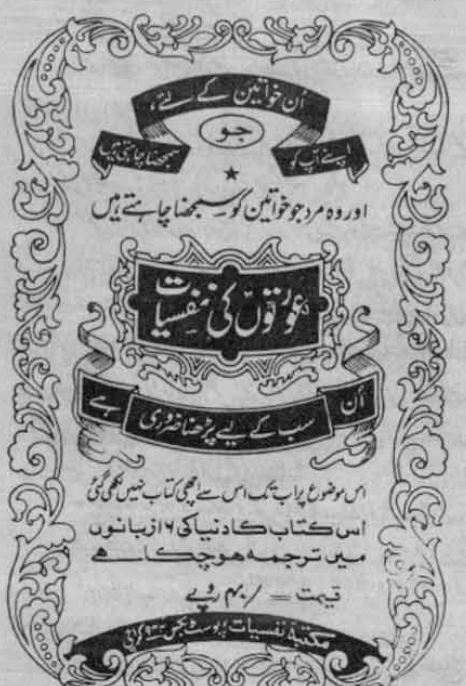 اُن خواتین کے لئے،
جو
اپنے آپ کو سمجھنا چاہتی ہیں
اور وہ مرد جو خواتین کو سمجھنا چاہتے ہیں
عورتوں کی نفسیات
اُن سب کے لیے پڑھنا ضروری ہے
اس موضوع پر اب تک اس سے اچھی کتاب نہیں لکھی گئی
اس کتاب کا دنیا کی ۱۶ زبانوں
میں ترجمہ ہوچکا ہے
قیمت = /۴۰ روپے
مکتبۂ نفسیات پوسٹ بکس کراچی